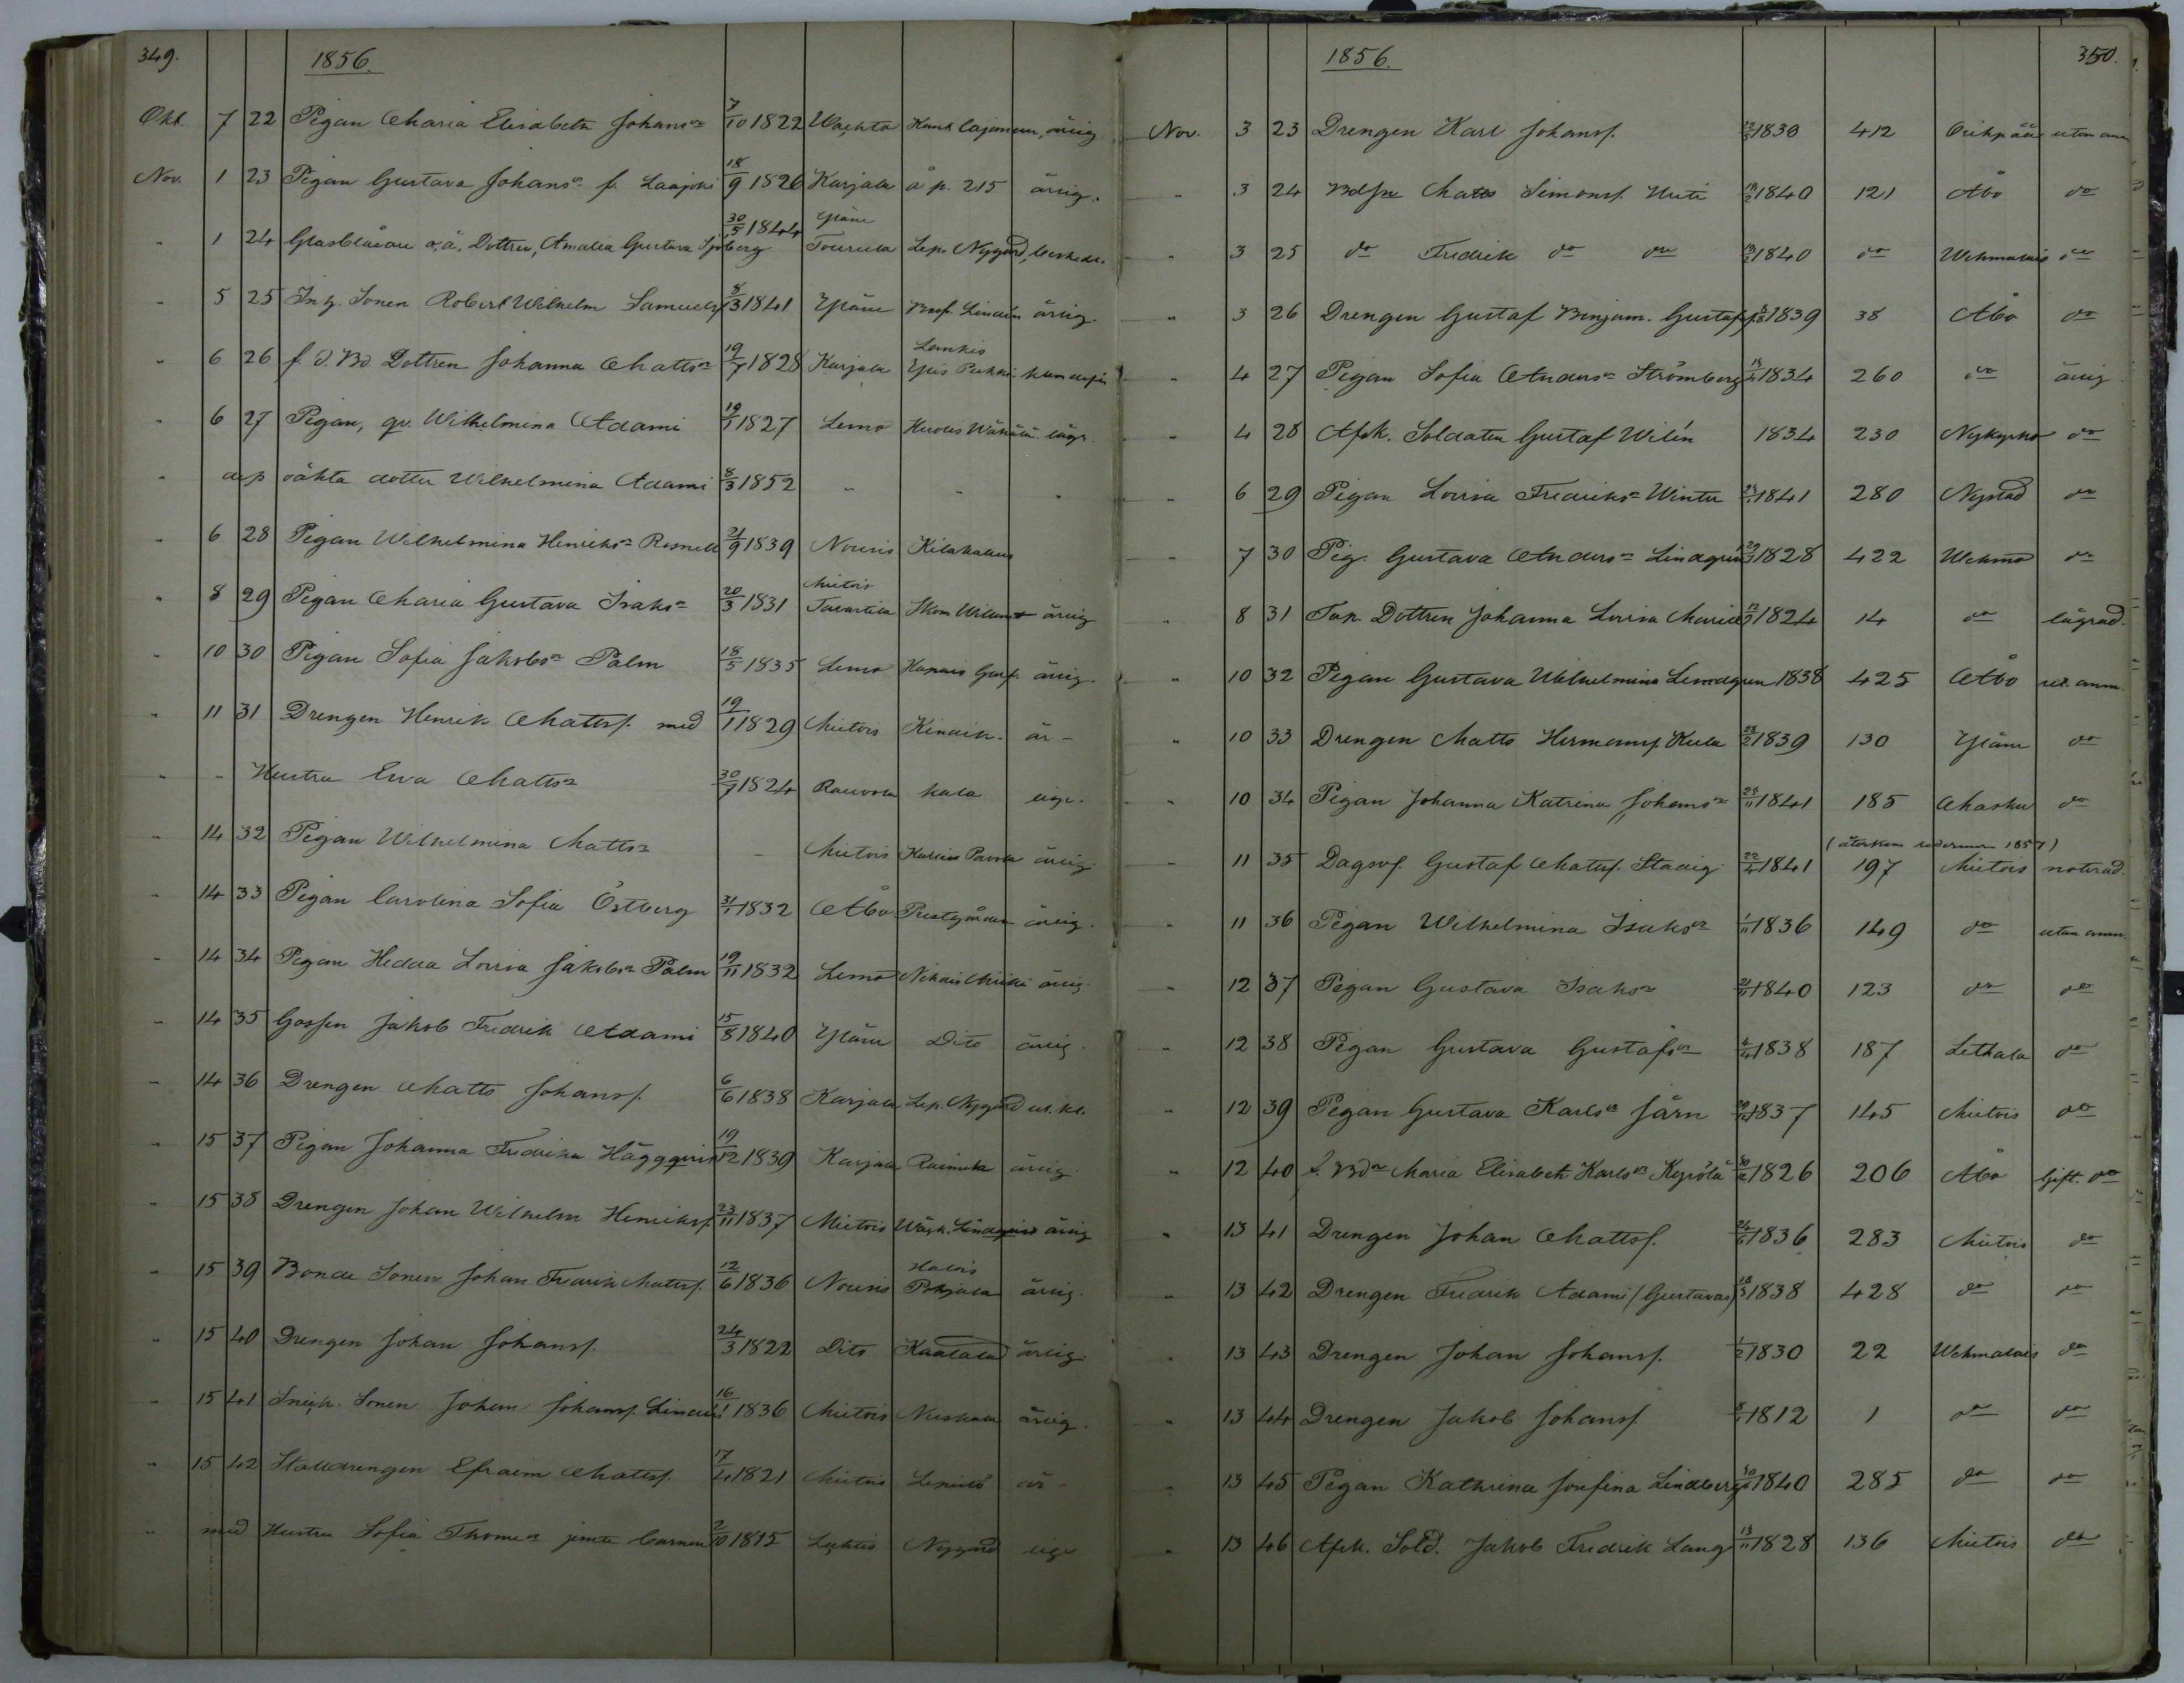 349.
1856.
Okt. 7 22 Pigan Maria Elisabeth Johansdr 7/10 1822 Wachta ärlig
Nov. 1 23 Pigan Gustava Johansdr f. Laajoki 18/9 1826 Karjala å p. 215 ärlig.
" 1 24 Glasblåsare Dottren, Amalia Gustava Sjöberg 30/5 1844 Yläne Tourula Lep. Nygård,
" 5 25 Inh. Sonen Robert Wilhelm Samuelsf. 8/3 1841 Yläne Linden ärlig.
" 6 26 f. d. Bd. Dottren Johanna Mattsdr 19/7 1828 Karjala Lemkis
" 6 27 Pigan, qv. Wilhelmina Adami 19/5 1827 Lemo
" dess oäkta dotter Wilhelmina Adami 8/3 1852 " " "
" 6 28 Pigan Wilhelmina Henriksdr Rosnell 21/9 1839 Nousis Kilakalas
" 8 29 Pigan Maria Gustava Isaksdr 20/3 1831 Mietois Tavastila Skom ärlig
" 10 30 Pigan Sofia Jakobsdr Palm 18/5 1835 Lemo Kapais ärlig.
" 11 31 Drengen Henrik Mattsf. med 19/1 1829 Mietois är-
" " Hustru Eva Mattsdr 30/7 1824 Rauvola kala liga.
" 14 32 Pigan Wilhelmina Mattsdr - Mietois ärlig
" 14 33 Pigan Carolina Sofia Östberg 31/1 1832 Åbo Prestgården ärlig.
" 14 34 Pigan Hedda Lovisa Jakobsdr Palm 19/11 1832 Lemo ärlig.
" 14 35 Gossen Jakob Fredrik Adami 15/8 1840 Yläne Dito ärlig.
" 14 36 Drengen Matts Johansf. 6/6 1838 Karjala Lep. Nygård
" 15 37 Pigan Johanna Fredrika Häggqvist 19/12 1839 Karjala Raimela ärlig.
" 15 38 Drengen Johan Wilhelm Henriksf. 23/11 1837 Mietois ärlig
" 15 39 Bonde Sonen Johan Fredrik Mattsf. 12/6 1836 Nousis Halois Pohjala ärlig.
" 15 40 Drengen Johan Johansf. 24/3 1822 Dito Kaalala ärlig.
" 15 41 Snick. Sonen Johan Johansf. 16/11 1836 Mietois ärlig.
" 15 42 Stalldrengen Efraim Mattsf. 17/4 1821 Mietois Lepistö är-
" med Hustru Sofia Thomasdr jemte barnen 2/10 1815 Nygård liga
1856.
350.
Nov. 3 23 Drengen Karl Johansf. 1830 412 Oripää utan anm
" 3 24 Bdsn Matts Simonsf. Uuti 1840 121 Åbo do
" 3 25 do Fredrik do do 1840 do Wehmalais do
" 3 26 Drengen Gustaf Benjam. Gustafsf. 1839 38 Åbo do
" 4 27 Pigan Sofia Andersdr Strömberg 1834 260 do ärlig.
" 4 28 Afsk. Soldaten Gustaf Wilén 1834 230 Nykyrko do
" 6 29 Pigan Lovisa Fredriksdr Winter 1841 280 Nystad do
" 7 30 Pig. Gustava Andersdr Lindgren 1828 422 Wehmo do
" 8 31 Tor. Dottren Johanna Lovisa Maria 1824 14 do lägrad.
" 10 32 Pigan Gustava Wilhelmina Lindgren 1838 425 Åbo anm.
" 10 33 Drengen Matts Hermansf. Keila 1839 130 Yläne do
" 10 34 Pigan Johanna Katrina Johansdr 1841 185 Masku do
(återkom 1857)
" 11 35 Dagsvf. Gustaf Mattsf. Stadig 22/4 1841 197 Mietois noterad.
" 11 36 Pigan Wilhelmina Isaksdr 1/11 1836 149 do utan anm.
" 12 37 Pigan Gustava Isaksdr 1840 123 do do
" 12 38 Pigan Gustava Gustafsdr 1838 187 Lethala do
" 12 39 Pigan Gustava Karlsdr Järn 1837 145 Mietois do
" 12 40 f. Bdr Maria Elisabeth Karlsdr Kyrölä 1826 206 Åbo Gift. do
" 13 41 Drengen Johan Mattsf. 1836 283 Mietois do
" 13 42 Drengen Fredrik Adami (Gustavas) 1838 428 do do
" 13 43 Drengen Johan Johansf. 1830 22 Wehmalais do
" 13 44 Drengen Jakob Johansf. 1812 1 do do
" 13 45 Pigan Kathrina Josefina Lindberg 1840 285 do do
" 13 46 Afsk. Sold. Jakob Fredrik Lang 13/11 1828 136 Mietois do